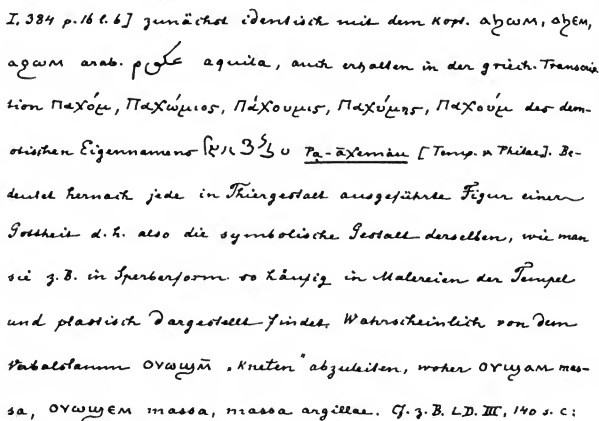 I, 384 p. 16 l. 6] zunächst identisch mit dem Kopt. ⲁϧⲱⲙ, ⲁϧⲉⲙ,
ⲁϩⲱⲙ arab. aquila, auch erhalten in der griech. Transcrip
tion Παχόμ, Παχώμιος, Πάχουμις, Παχύμης, Παχούμ des dem-
otischen Eigennamens Pa-āχemàu [Temp. v. Philae]. Be-
deutet hernach jede in Thiergestalt ausgeführte Figur einer
Gottheit d. h. also die symbolische Gestalt derselben, wie man
sie z. B. in Sperberform so häufig in Malereien der Tempel
und plastisch dargestellt findet. Wahrscheinlich von dem
Verbalstamm ⲟⲩⲱϣⲙ̄ „kneten" abzuleiten, woher ⲟⲩϣⲁⲙ mas-
sa, ⲟⲩⲱϣⲉⲙ massa, massa argillae. Cf. z. B. LD. III, 140 s. c: